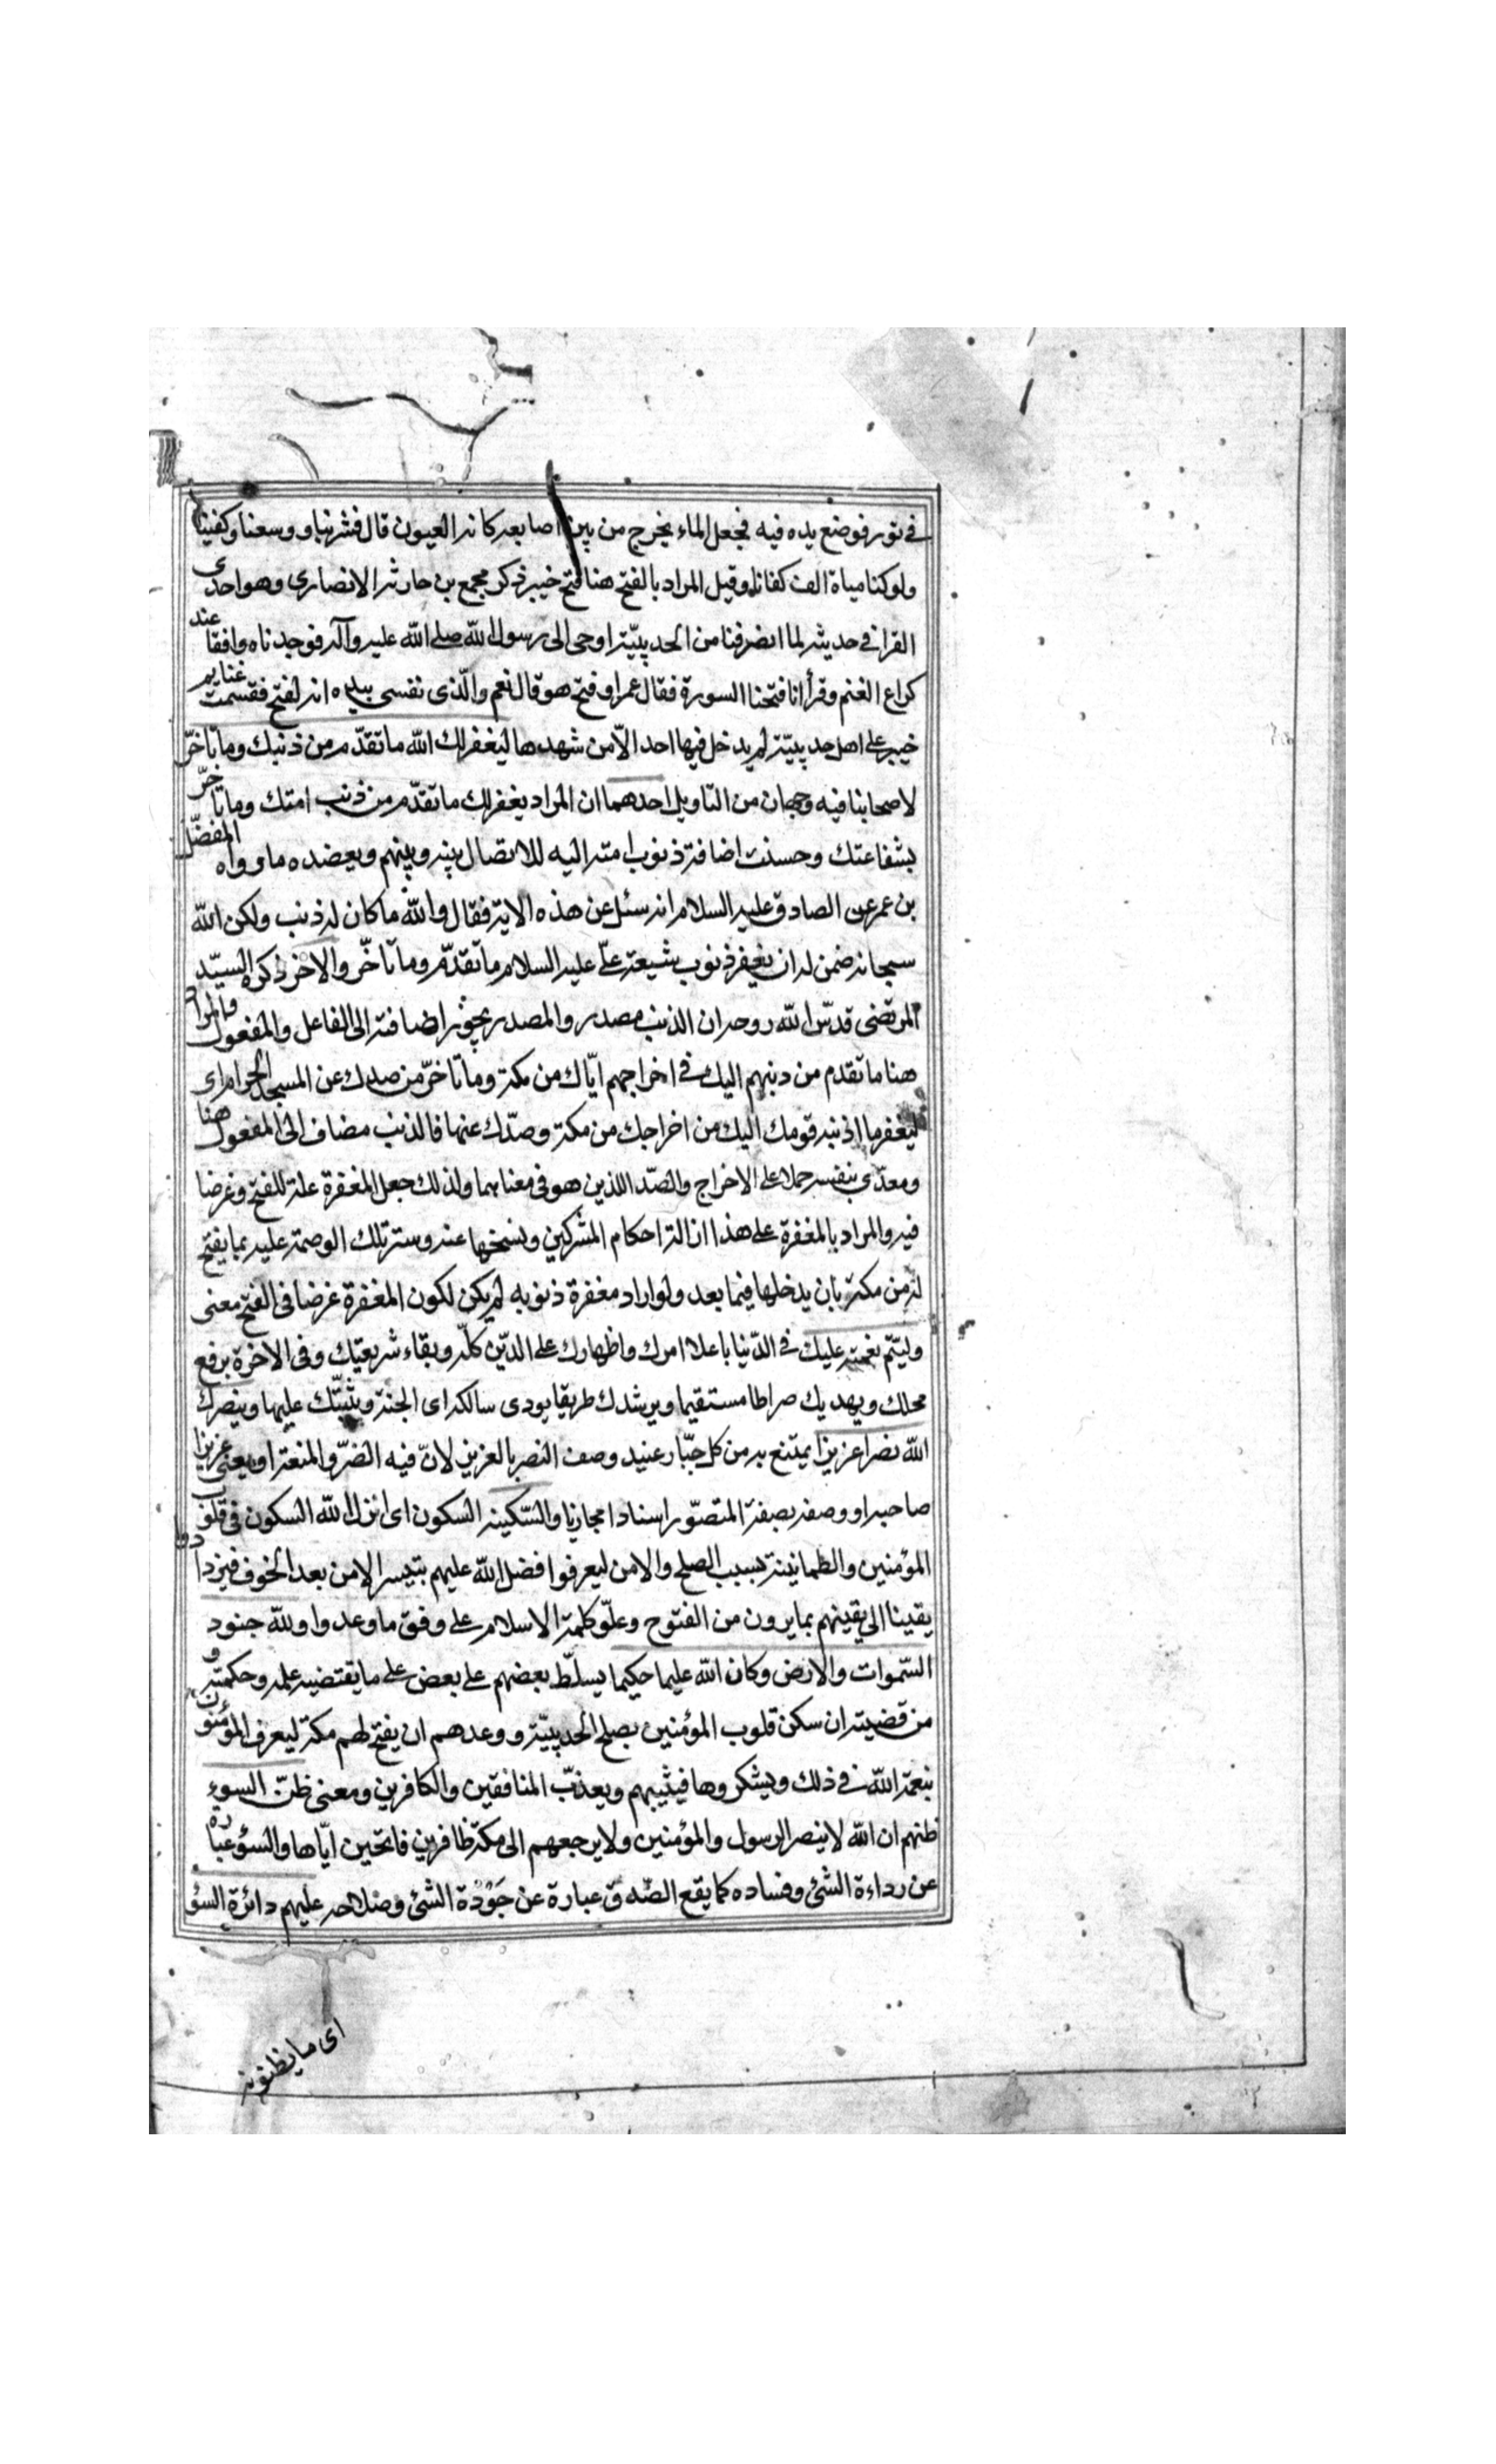 في تور فوضع يده فيه فجعل الماء يخرج من بين اصابعه كانه العيون قال فشربنا ووسعنا وكفينا
ولو كنا مياة الف كفانا وقيل المراد بالفتح هنا فتح خيبر ذكر مجمع بن حارثه الانصارى وهو احدى
القرا في حديثه لما انصرفنا من الحديبيّة اوحى الى رسول الله صلى الله عليه وآله فوجدناه وافقا عند
كراع الغنم وقرأ انا فتحنا السورة فقال عمر او فتح هو قال نعم والّذى نفسى بيده انه لفتح فقسمت غنايم
خيبر على اهل حديبيّة لم يدخل فيها احد الّا من شهدها ليغفر لك الله ما تقدّم من ذنبك وما تاخّر
لاصحابنا فيه وجهان من التاويل احدهما ان المراد يغفر لك ما تقدّم من ذنب امتك وما تاخّر
بشفاعتك وحسنت اضافة ذنوب امته اليه للاتصال بينه وبينهم ويعضده ما رواه المفضّل
بن عمر عن الصادق عليه السلام انه سئل عن هذه الاية فقال والله ما كان له ذنب ولكن الله
سبحانه ضمن له ان يغفر ذنوب شيعة علّى عليه السلام ما تقدّم وما تاخّر والاخر ذكره السيّد
المرتضى قدّس الله روحه ان الذنب مصدر والمصدر يجوز اضافته الى الفاعل والمفعول فالمراد
هنا ما تقدم من دنبهم اليك في اخراجهم ايّاك من مكة وما تاخّر من صدك عن المسجد الحرام اى
ليغفر ما اذنبه قومك اليك من اخراجك من مكة وصدّك عنها فالذنب مضاف الى المفعول هنا
ومعدّى بنفسه حملا على الاخراج والصّد اللذين هو فى معناهما ولذلك جعل المغفرة علة للفتح وغرضا
فيه والمراد بالمغفرة على هذا ازالة احكام المشركين ونسخها عنه وستر تلك الوصمة عليه بما يفتح
له من مكة بان يدخلها فيما بعد ولو اراد مغفرة ذنوبه لم يكن لكون المغفرة غرضا فى الفتح معنى
وليتّم نعمته عليك في الدّنيا باعلا امرك واظهارك على الدّين كلّه وبقاء شريعتك وفى الاخرة برفع
محلك ويهديك صراطا مستقيما ويرشدك طريقا يودى سالكه اى الجنة ويثبّتك عليها وينصرك
الله نصرا عزيزا يمتنع به من كل جبّار عنيد وصف النصر بالعزيز لانّ فيه الضرّ والمنعة او يعنى عزيزا
صاحبه او وصفه بصفة المتصوّر اسنادا مجازيا والسّكينه السكون اى انزل الله السكون فى قلوب
المؤمنين والطمانينة بسبب الصلح والامن ليعرفوا فضل الله عليهم بتيسر الامن بعد الخوف فيزدادوا
يقينا الى يقينهم بما يرون من الفتوح وعلّو كلمة الاسلام على وفق ما وعدوا ولله جنود
السّموات والارض وكان الله عليما حكيما يسلّط بعضهم على بعض على ما يقتضيه علمه وحكمته و
من قضيته ان سكن قلوب المؤمنين بصلح الحديبيّة ووعدهم ان يفتح لهم مكة ليعرف المؤمنون
نعمة الله في ذلك ويشكروها فيثيبهم ويعذّب المنافقين والكافرين ومعنى ظنّ السوء
ظنهم ان الله لا ينصر الرسول والمؤمنين ولا يرجعهم الى مكة ظافرين فاتحين ايّاها والسؤ عبارة
عن رداءة الشئ وفساده كما يقع الصّدق عبارة عن جَوْدة الشئ وصلاحه عليهم دائرة السؤ
اى ما يظنونه